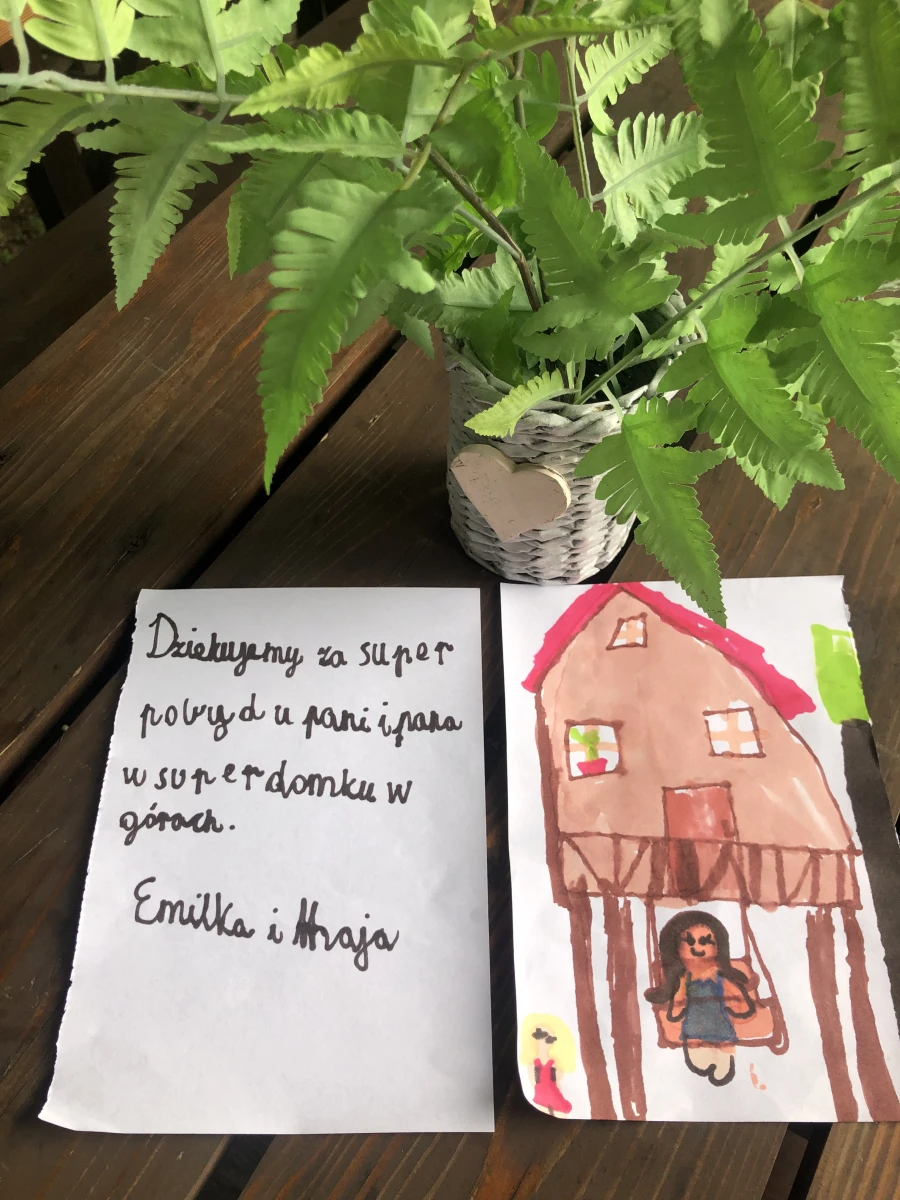 Dziekujemy za super
pobyd u pani i pana
w super domku w
górach.
Emilka i Maja